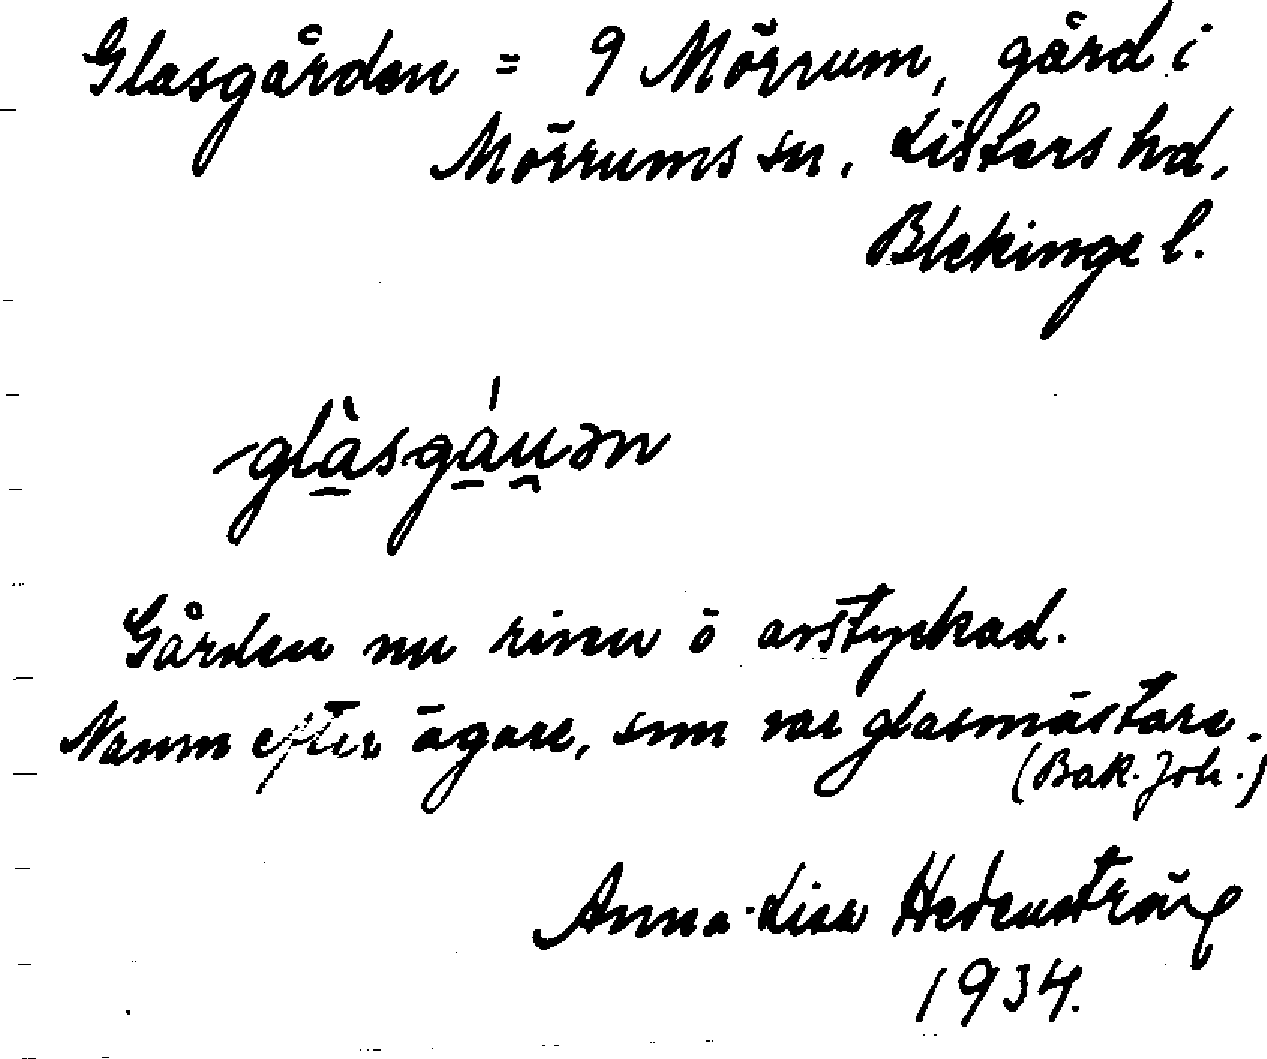 Glasgården = 9 Mörrum, gård i
Mörrums sn, Listers hd,
Blekinge l.
glàsgáu̯ən
Gården nu riven o avstyckad.
Namn efter ägare, som var glasmästare.
(Bak. Joh.)
Anna-Lisa Hedenström
1934.